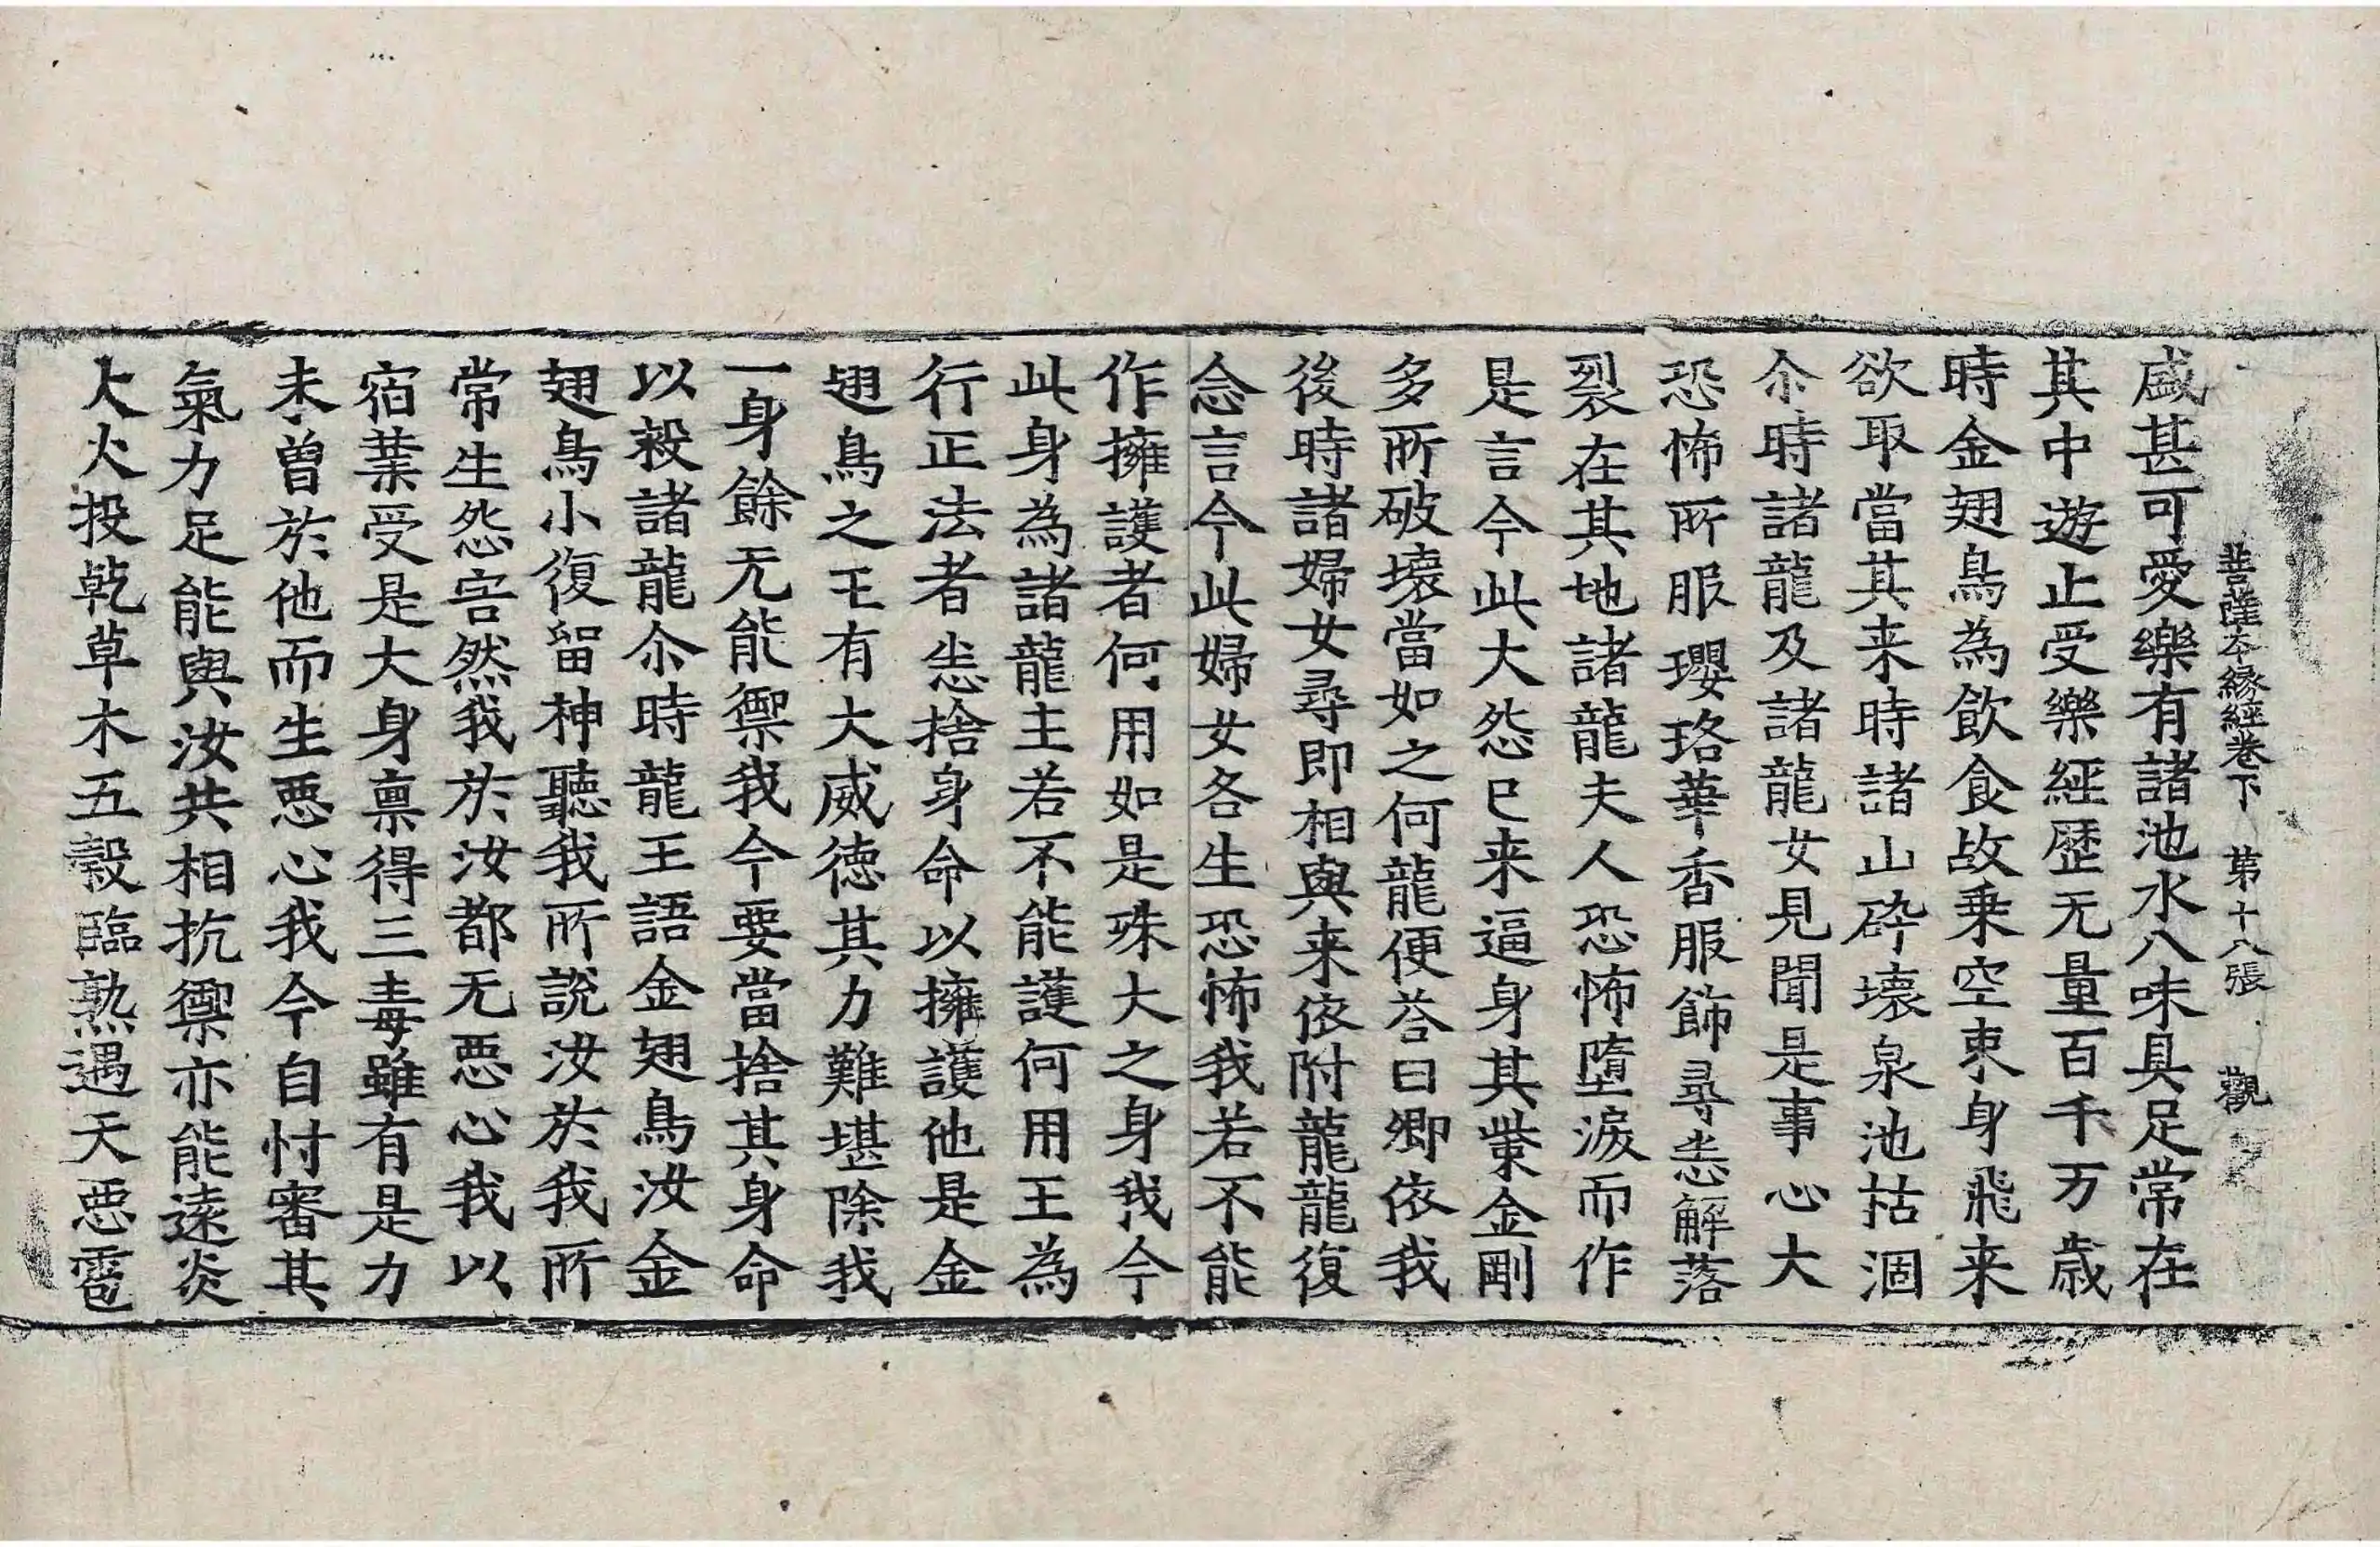 菩薩本縁經卷下　第十八張　觀
盛甚可愛樂有諸池水八味具足常在
其中遊止受樂經歷无量百千万歲
時金翅鳥為飲食故乗空束身飛来
欲取當其来時諸山碎壞泉池枯涸
尒時諸龍及諸龍女見聞是事心大
恐怖所服瓔珞華香服飾尋悉解落
裂在其地諸龍夫人恐怖墮淚而作
是言今此大怨已来逼身其㭰金剛
多所破壞當如之何龍便荅曰卿依我
後時諸婦女尋即相與来依附龍龍復
念言今此婦女各生恐怖我若不能
作擁護者何用如是殊大之身我今
此身為諸龍主若不能護何用王為
行正法者悉捨身命以擁護他是金
翅鳥之王有大威徳其力難堪除我
一身餘无能禦我今要當捨其身命
以救諸龍尒時龍王語金翅鳥汝金
翅鳥小復留神聽我所說汝於我所
常生怨害然我於汝都无惡心我以
宿業受是大身禀得三毒雖有是力
未曽於他而生惡心我今自忖審其
氣力足能與汝共相抗禦亦能遠炎
大火投乾草木五糓臨熟遇天惡雹